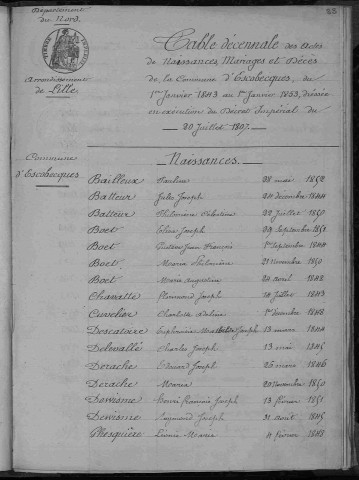 Département
du Nord.
Arrondissement
de Lille.
Commune
d'Escobecques.
Table décennale des Actes
de Naissances, Mariages et Décès
de la Commune d'Escobecques, du
1er Janvier 1843 au 1er Janvier 1853, dressée
en exécution du Décret Impérial du
20 Juillet 1807.
Naissances.
Bailleux Pauline 28 mai 1852
Batteur Jules Joseph 24 décembre 1844
Batteur Philomène Célestine 22 juillet 1850
Boet Joseph 29 septembre 1851
Boet François 1er septembre 1844
Boet Maria Philomène 21 novembre 1850
Boet Maria Augustine 24 avril 1848
Chavatte Florimond Joseph 14 juillet 1843
Cuvelier Charlotte 1er décembre 1848
Descatoire Joseph 13 mars 1844
Delevallé Charles Joseph 13 mai 1845
Derache Joseph 26 mars 1846
Derache Maria 20 novembre 1850
Dewisme Henri François Joseph 13 février 1851
Dewisme Raymond Joseph 31 août 1845
Ghesquière Maria 4 février 1848